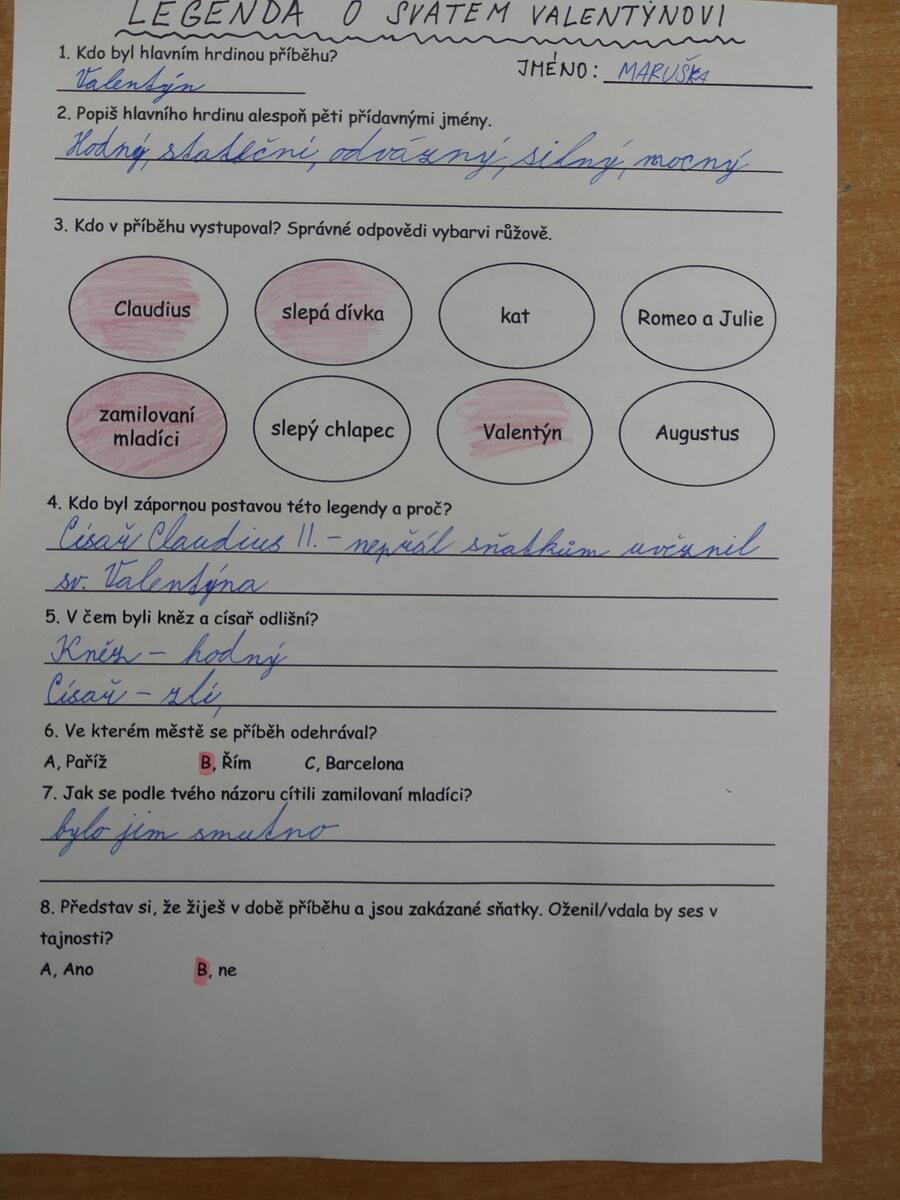 LEGENDA O SVATÉM VALENTÝNOVI
1. Kdo byl hlavním hrdinou příběhu?
JMÉNO: MARUŠKA
Valentýn
2. Popiš hlavního hrdinu alespoň pěti přídavnými jmény.
Hodný, stateční, odvázný, silný, mocný
3. Kdo v příběhu vystupoval? Správné odpovědi vybarvi růžově.
Claudius slepá dívka kat Romeo a Julie
zamilovaní mladíci slepý chlapec Valentýn Augustus
4. Kdo byl zápornou postavou této legendy a proč?
Císař Claudius II. - nepřál sňatkům uvěznil
sv. Valentýna
5. V čem byli kněz a císař odlišní?
Kněz - hodný
Císař - zlí,
6. Ve kterém městě se příběh odehrával?
A, Paříž B, Řím C, Barcelona
7. Jak se podle tvého názoru cítili zamilovaní mladíci?
bylo jim smutno
8. Představ si, že žiješ v době příběhu a jsou zakázané sňatky. Oženil/vdala by ses v
tajnosti?
A, Ano B, ne